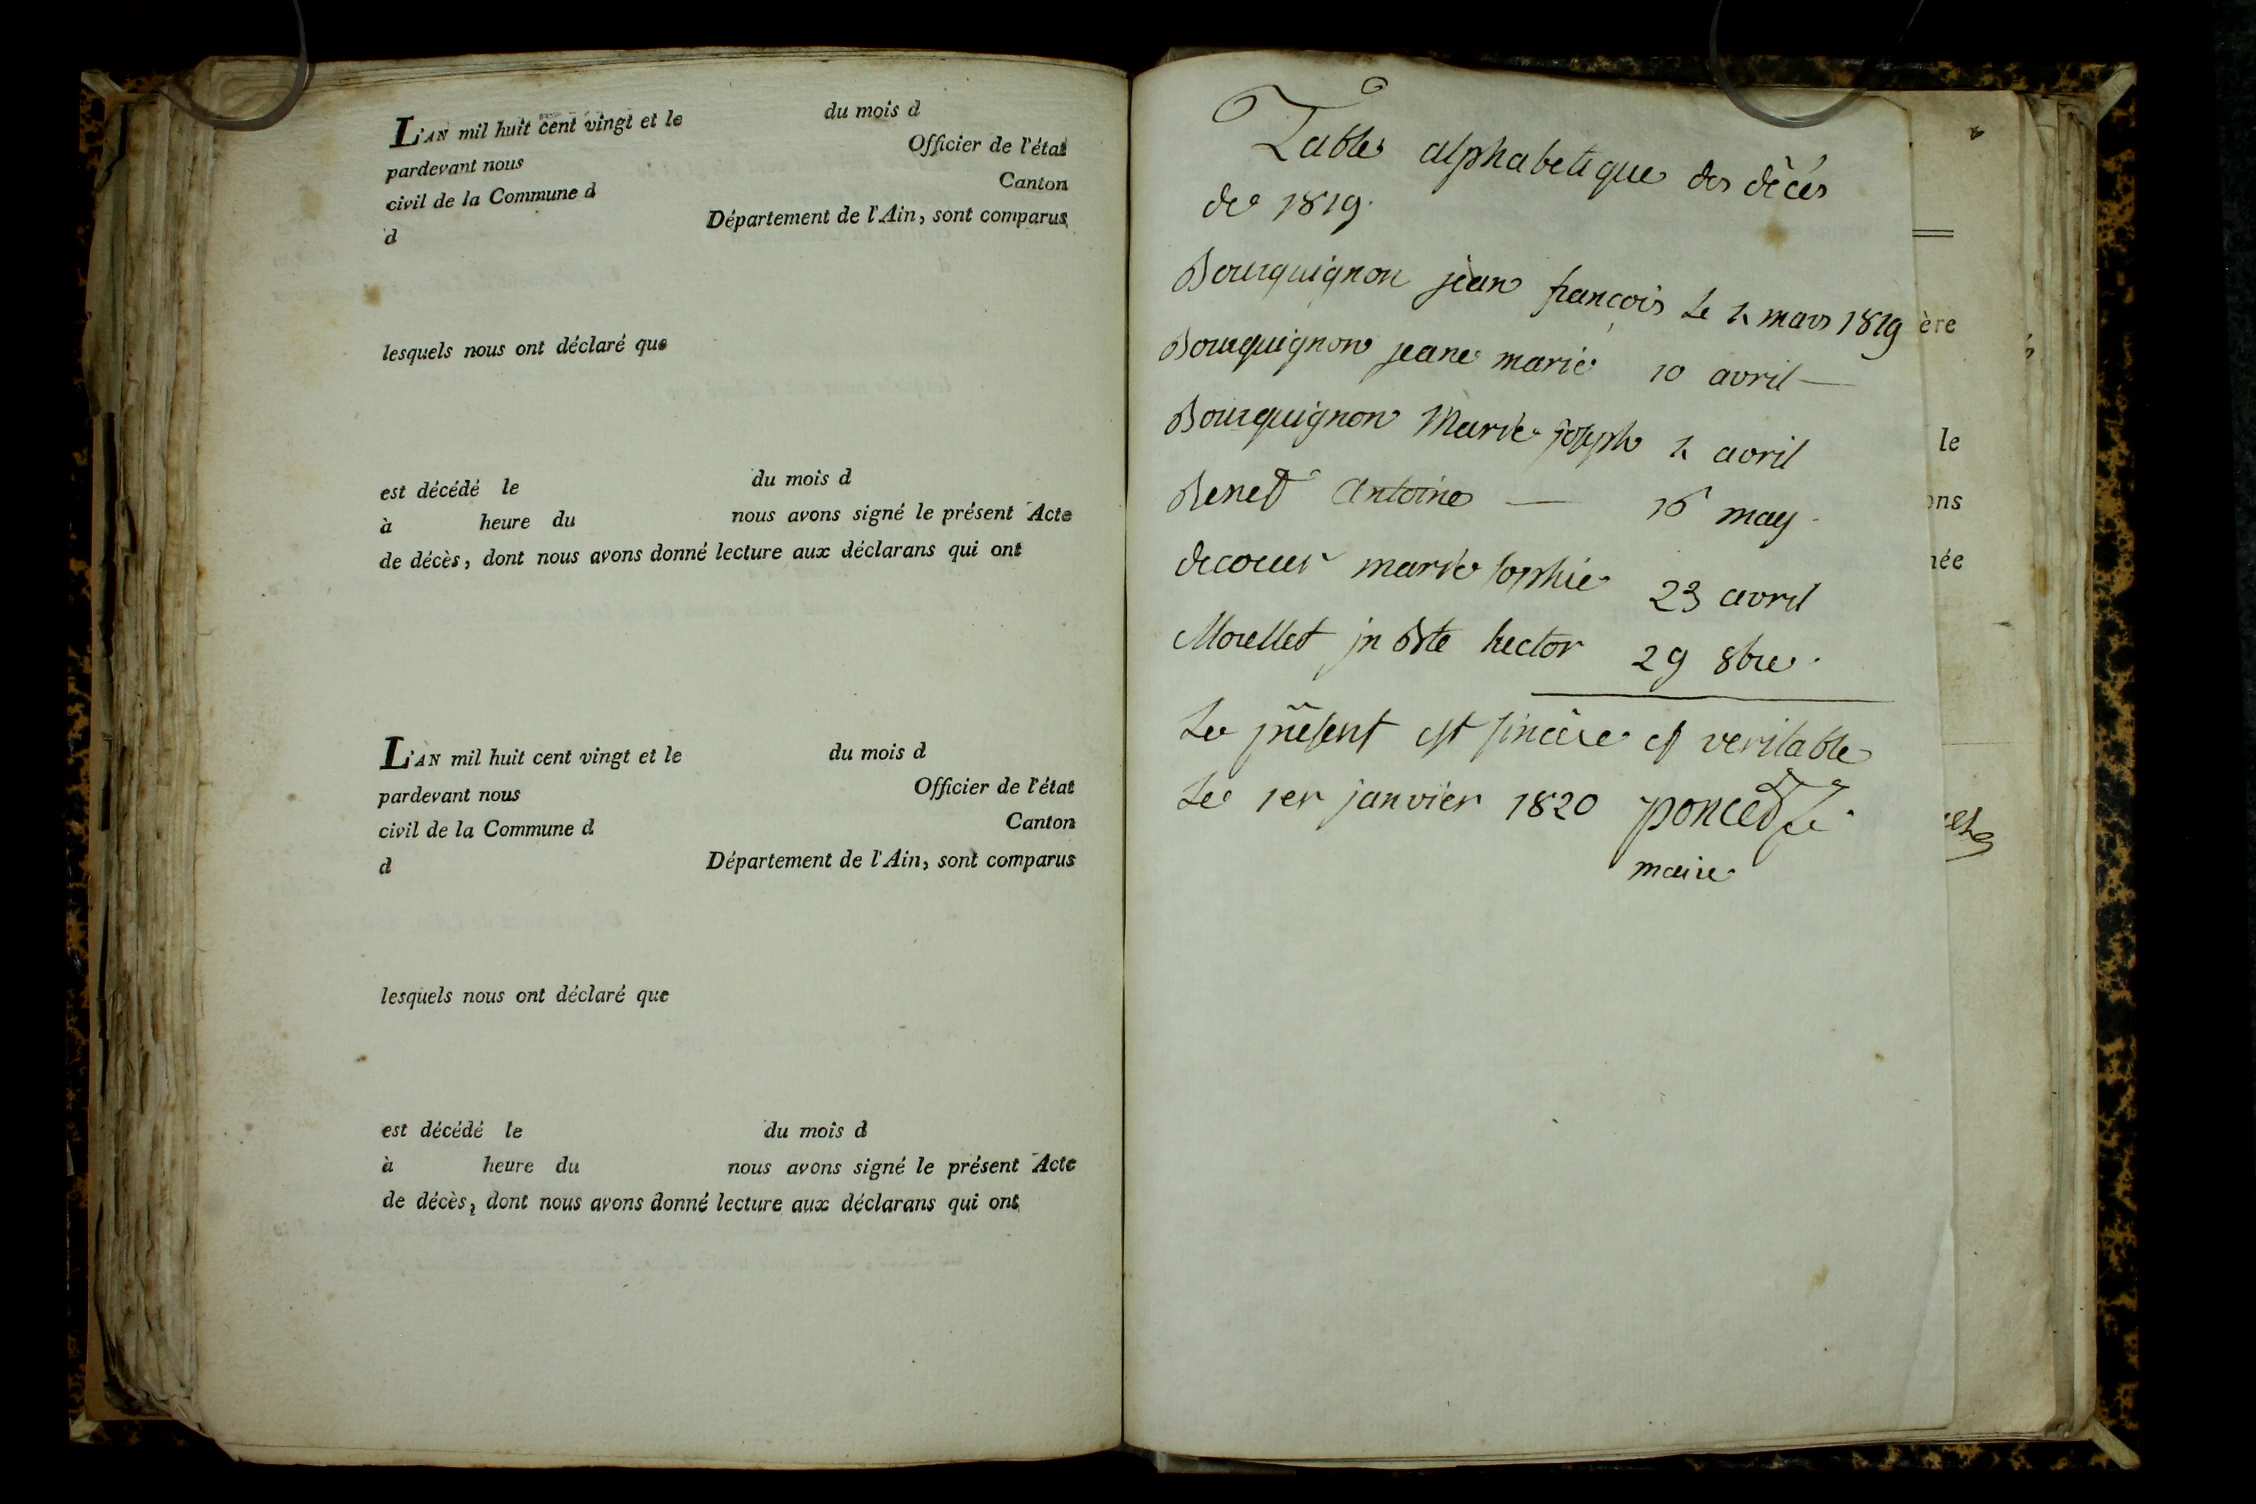 L'AN mil huit cent vingt et le du mois d
pardevant nous Officier de l'état
civil de la Commune d Canton
d Département de l'Ain, sont comparus
lesquels nous ont déclaré que
est décédé le du mois d
à heure du nous avons signé le présent Acte
de décès, dont nous avons donné lecture aux déclarans qui ont
L'AN mil huit cent vingt et le du mois d
pardevant nous Officier de l'état
civil de la Commune d Canton
d Département de l'Ain, sont comparus
lesquels nous ont déclaré que
est décédé le du mois d
à heure du nous avons signé le présent Acte
de décès, dont nous avons donné lecture aux déclarans qui ont
Table alphabetique des décés
de 1819.
Bourquignon jean françois Le mars 1819
Bourquignon jeane marie 10 avril —
Bourquignon Marie joseph avril
Benet Antoine — 16 may.
decoeur marie sophie 23 avril
Morellet jn Bte hector 29 8bre.
Le présent est sincère et veritable
Le 1er janvier 1820 poncet
maire
ère
le
ons
née